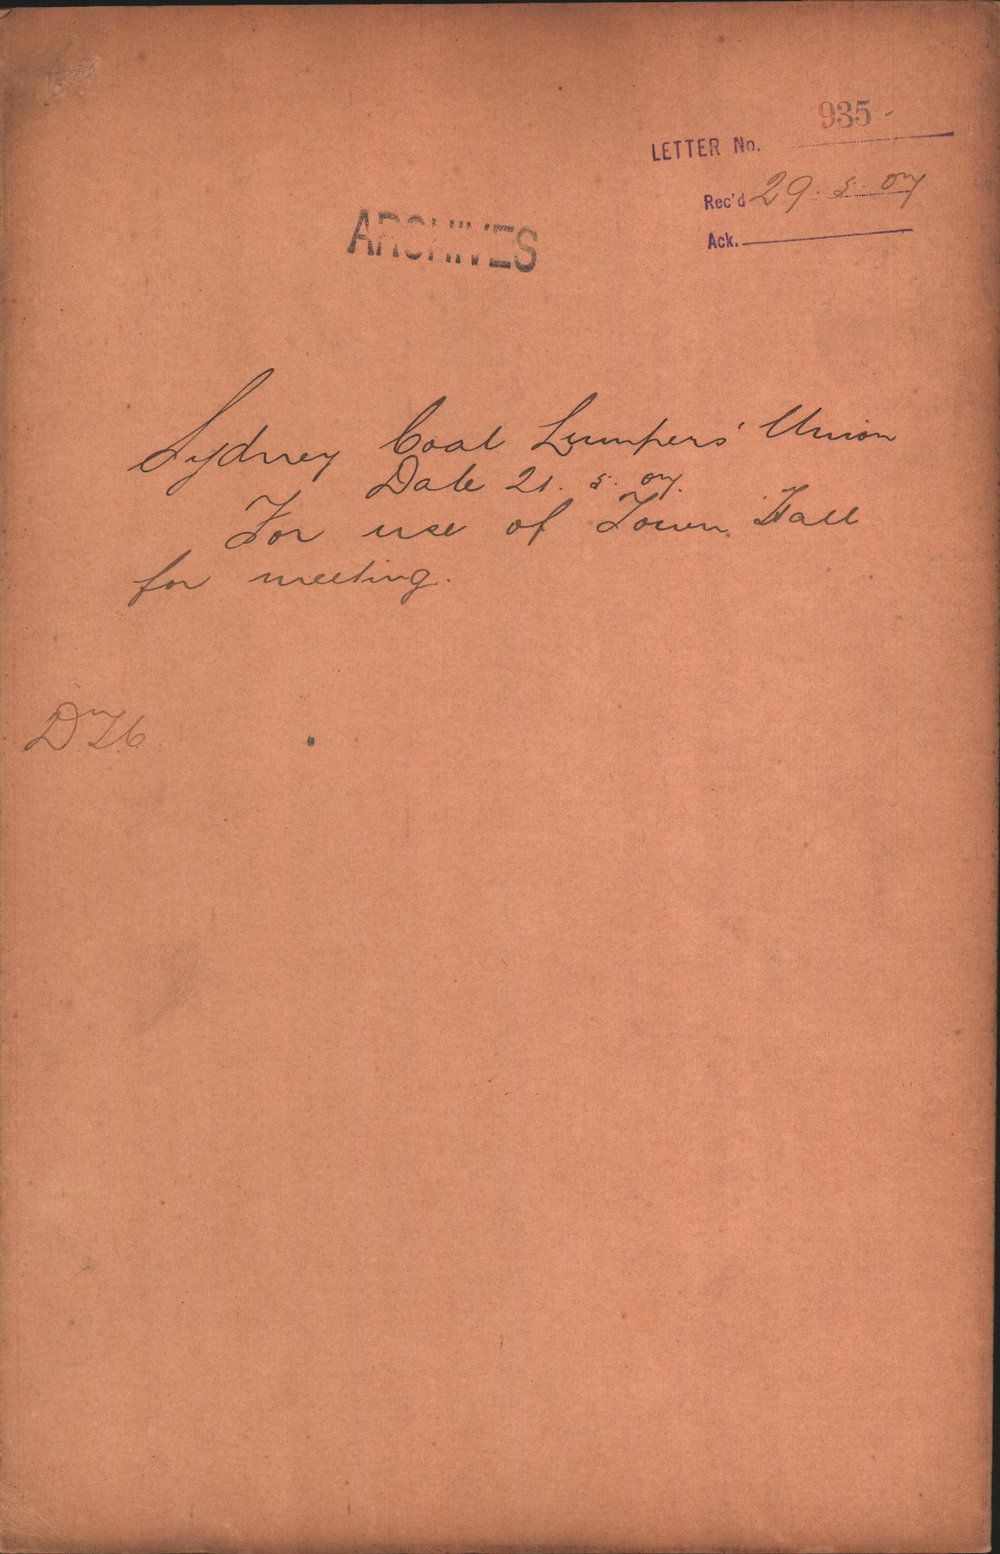 935
LETTER No.
Rec'd 29. 5. 07
Ack.
ARCHIVES
Sydney Coal Lumpers' Union
Date 21. 5. 07.
For use of Town Hall
for meeting.